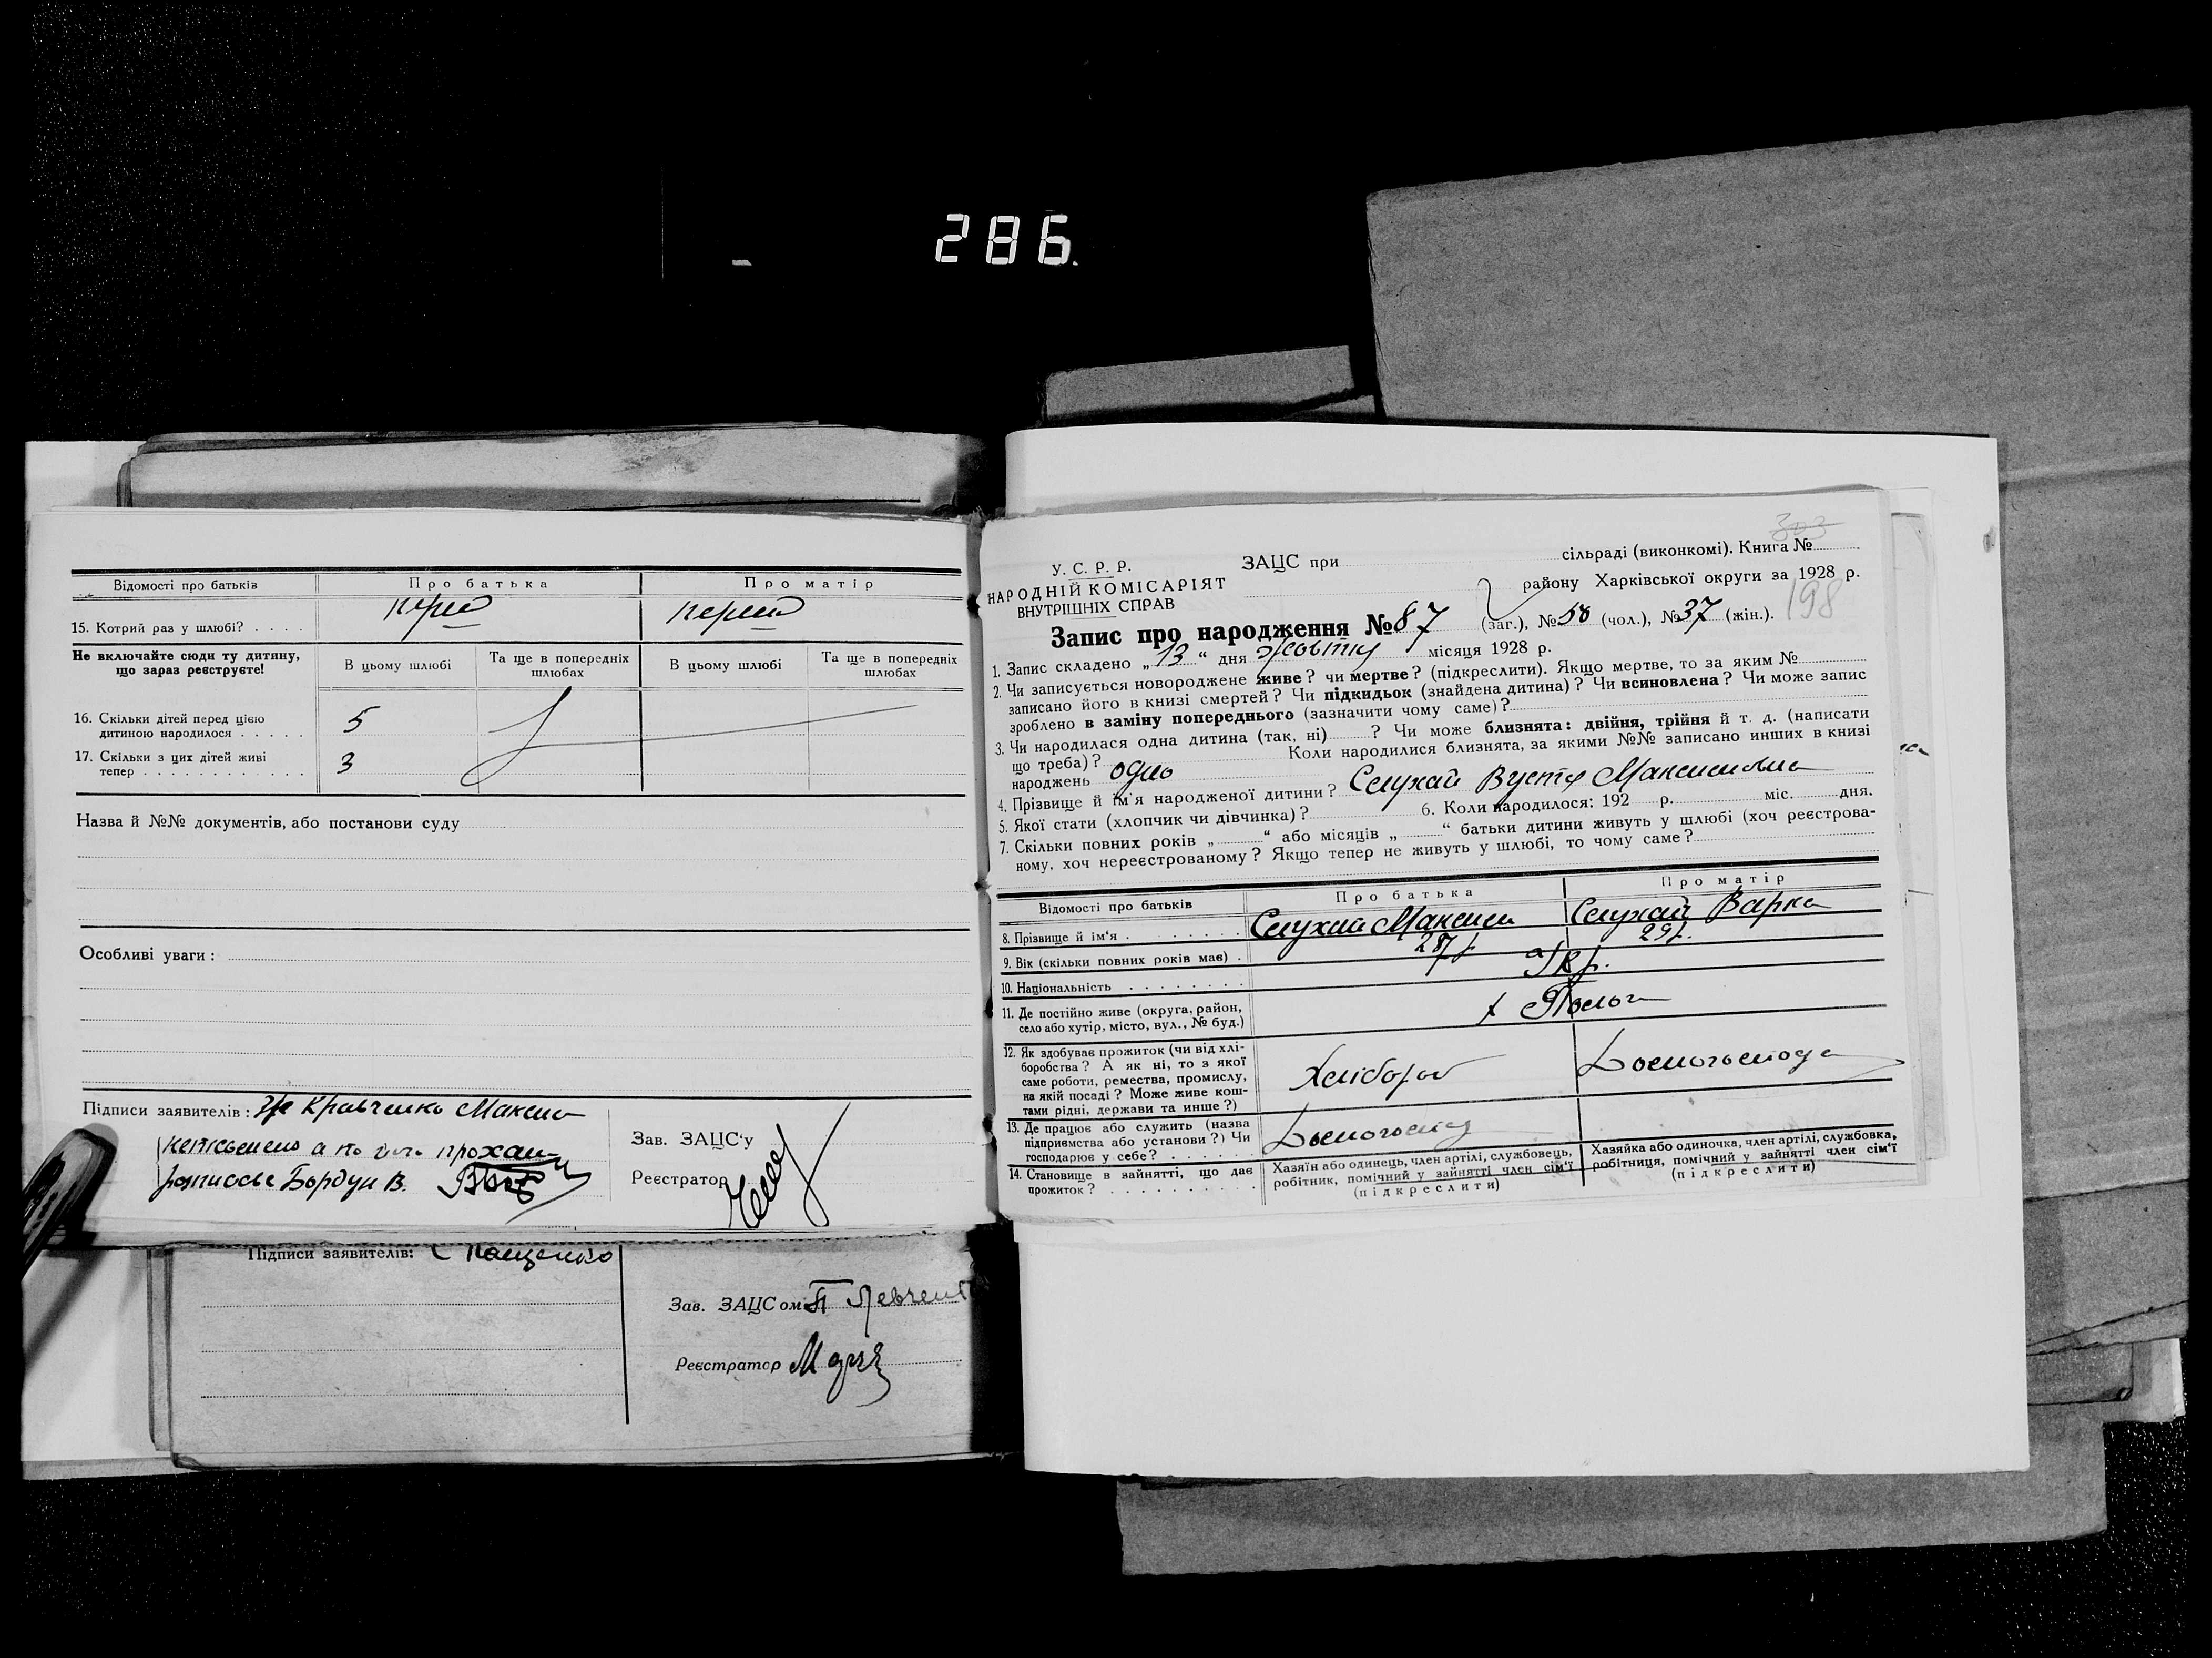 286.
Відомості про батьків
Про батька
Про матір
15. Котрий раз у шлюбі? . . . .
Не включайте сюди ту дитину,
що зараз реєструєте!
В цьому шлюбі
Та ще в попередніх
шлюбах
В цьому шлюбі
Та ще в попередніх
шлюбах
16. Скільки дітей перед цією
дитиною народилося . . . . .
5
17. Скільки з цих дітей живі
тепер . . . . . . . . . . . .
3
Назва й №№ документів, або постанови суду
Особливі уваги:
Підписи заявителів: Кравченко Максим
прохання
Бордун В.
Зав. ЗАЦС'у
Реєстратор
Підписи заявителів: Пащенко
Зав. ЗАЦСом П Левченко
Реєстратор
303
У. С. Р. Р.
НАРОДНІЙ КОМІСАРІЯТ
ВНУТРІШНІХ СПРАВ
ЗАЦС при
сільраді (виконкомі). Книга №
району Харківської округи за 1928 р.
198
Запис про народження № 87 (заг.), № 50 (чол.), № 37 (жін.).
1. Запис складено „13“ дня Жовтня місяця 1928 р.
2. Чи записується новороджене живе? чи мертве? (підкреслити). Якщо мертве, то за яким №
записано його в книзі смертей? Чи підкидьок (знайдена дитина)? Чи всиновлена? Чи може запис
зроблено в заміну попереднього (зазначити чому саме)?
3. Чи народилася одна дитина (так, ні) ? Чи може близнята: двійня, трійня й т. д. (написати
що треба)? Коли народилися близнята, за якими №№ записано инших в книзі
народжень одно
4. Прізвище й ім'я народженої дитини? Слухай Вустя Максимовна
5. Якої стати (хлопчик чи дівчинка)? 6. Коли народилося: 192 р. міс. дня.
7. Скільки повних років „ “ або місяців „ “ батьки дитини живуть у шлюбі (хоч реєстрова-
ному, хоч нереєстрованому? Якщо тепер не живуть у шлюбі, то чому саме?
Відомості про батьків
Про батька
Про матір
8. Прізвище й ім'я . . . . . . . .
Слухай Максим
Слухай Варка
9. Вік (скільки повних років має) .
28 р
29 р.
10. Національність . . . . . . . .
Укр.
11. Де постійно живе (округа, район,
село або хутір, місто, вул., № буд.)
12. Як здобуває прожиток (чи від хлі-
боробства? А як ні, то з якої
саме роботи, ремества, промислу,
на якій посаді? Може живе кош-
тами рідні, держави та инше?)
Хлібороб
Домогоспода
13. Де працює або служить (назва
підприємства або установи?) Чи
господарює у себе? . . . . . .
14. Становище в зайнятті, що дає
прожиток? . . . . . . . . . .
Хазяїн або одинець, член артілі, службовець,
робітник, помічний у зайнятті член сім'ї
(підкреслити)
Хазяйка або одиночка, член артілі, службовка,
робітниця, помічний у зайнятті член сім'ї
(підкреслити)